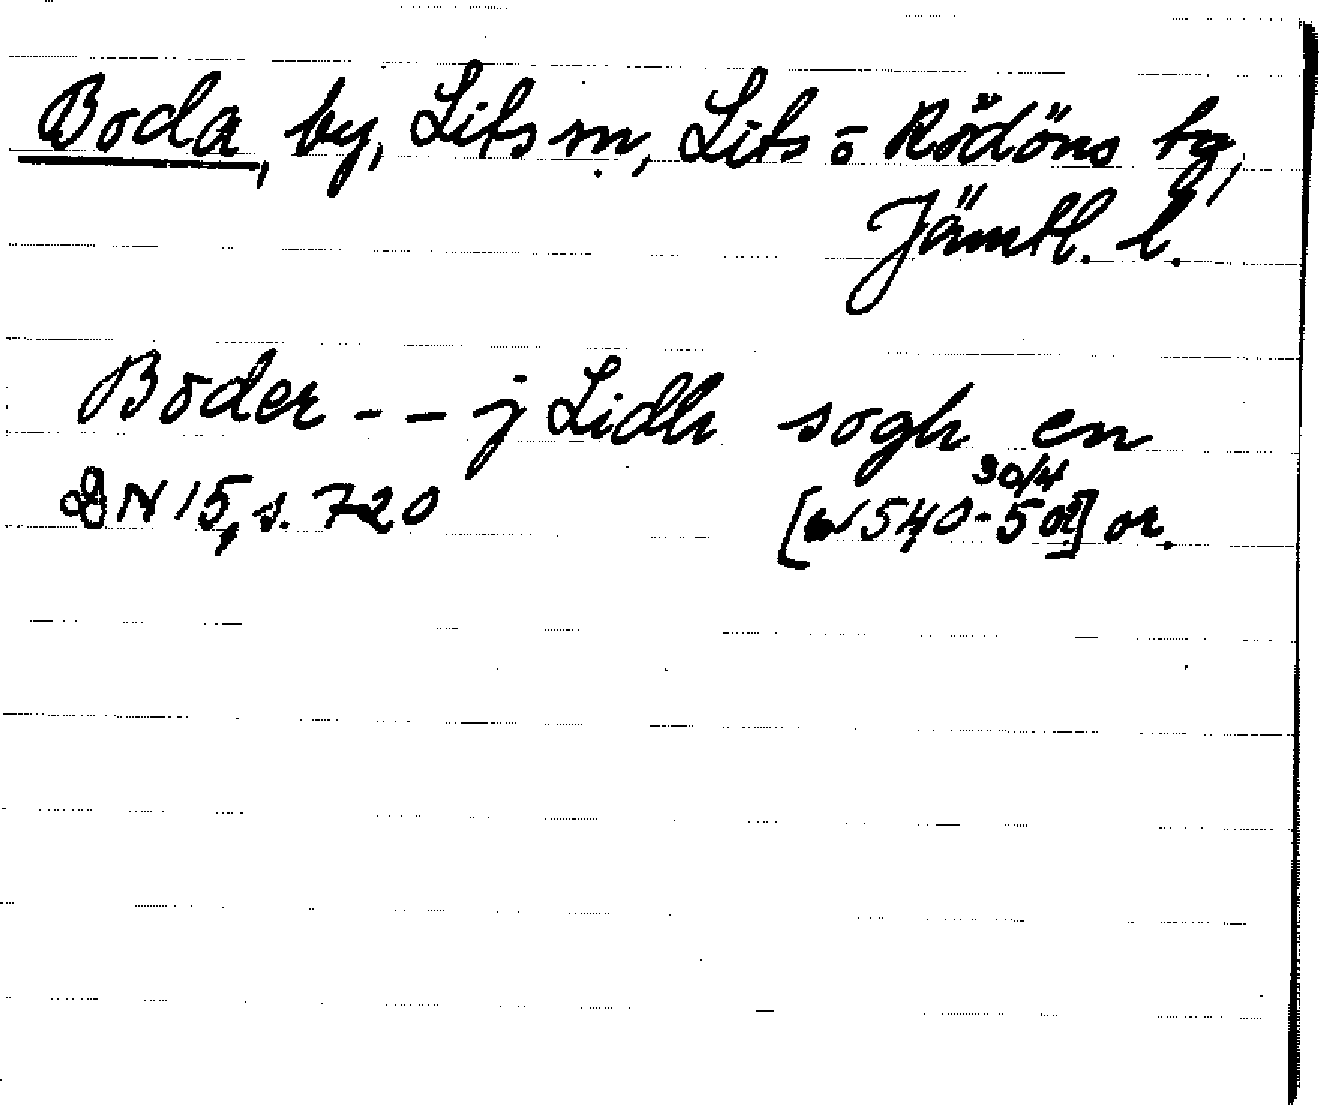 Boda, by, Lits sn, Lits o Rödöns tg,
Jämtl. l.
Boder - - j Lidh sogh en
DN 15, s. 720 30/4
[1540-50] or.